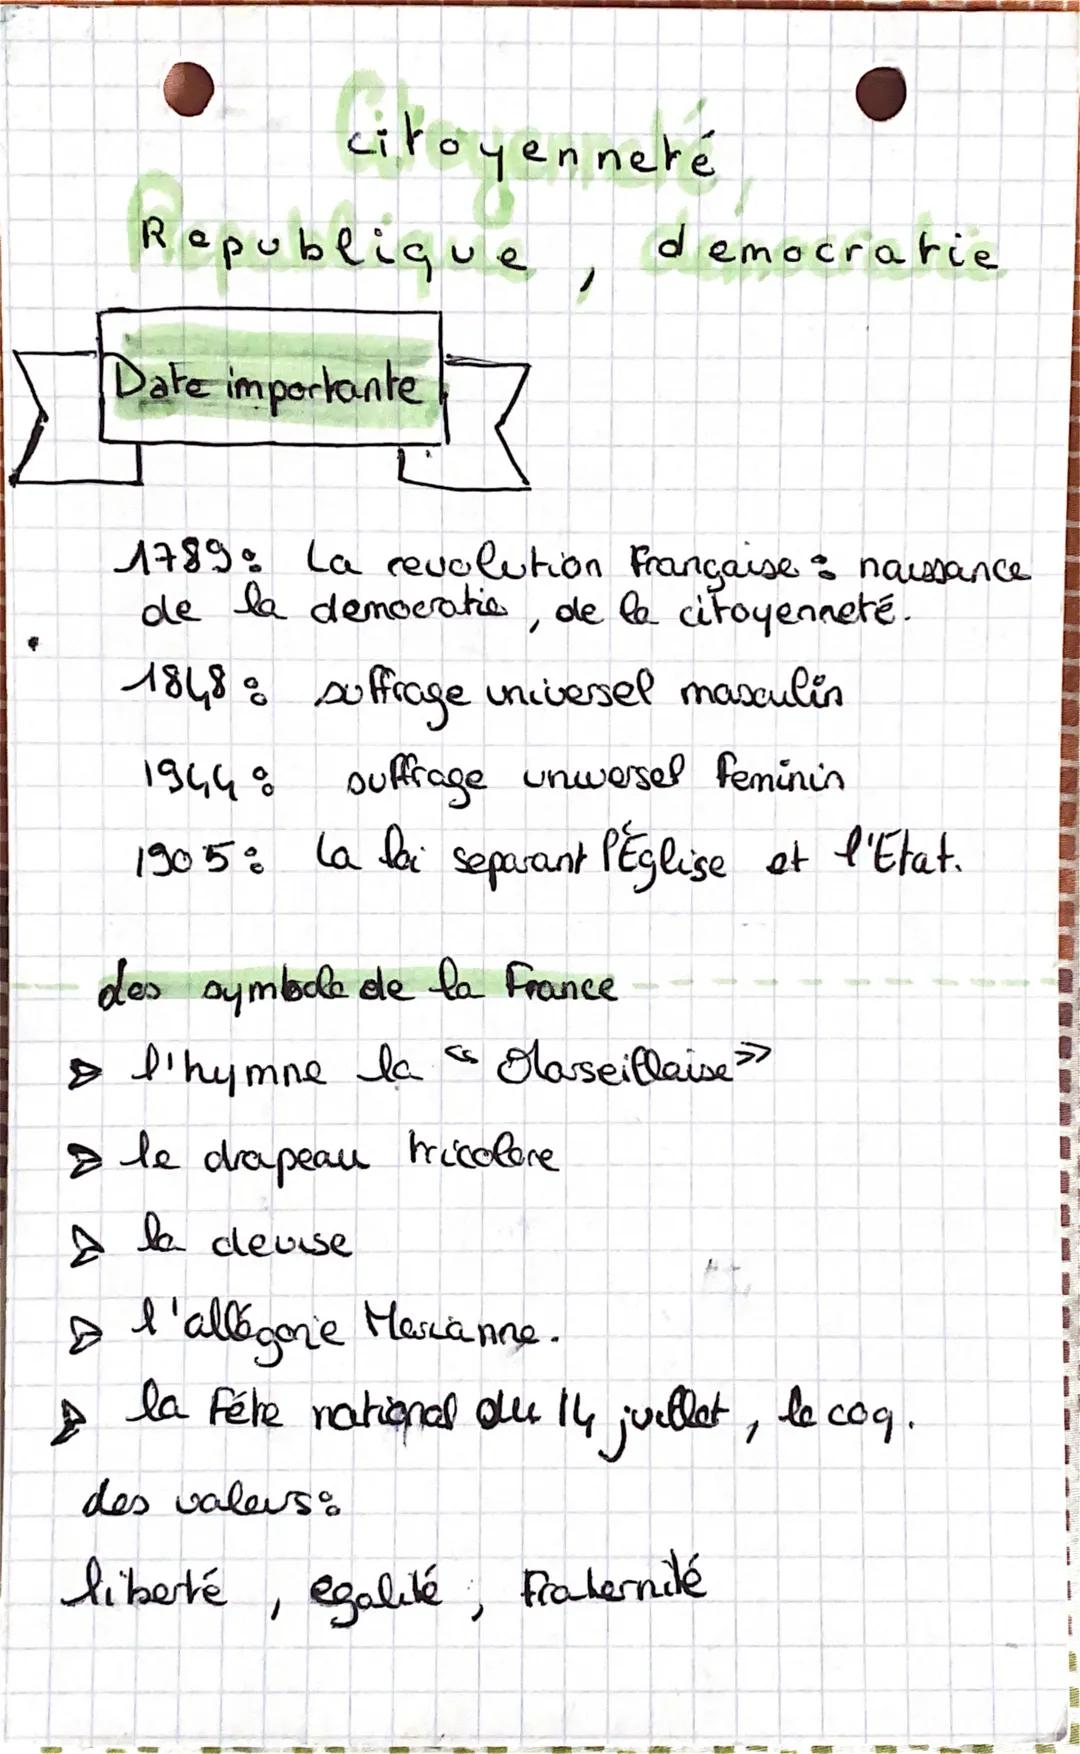 citoyenneté
Republique, démocratie
Date importante
1789: La revolution Française: naissance
de la democratie, de la citoyenneté.
1848: suffrage universel masculin
1944: suffrage universel feminin
1905: la loi separant l'Église et l'Etat.
des symbole de la France
l'hymne la "Marseillaise"
le drapeau tricolore
la devise
l'allégorie Marianne.
la Fête national du 14 juillet, le coq.
des valeurs:
liberté, egalité, Fraternité